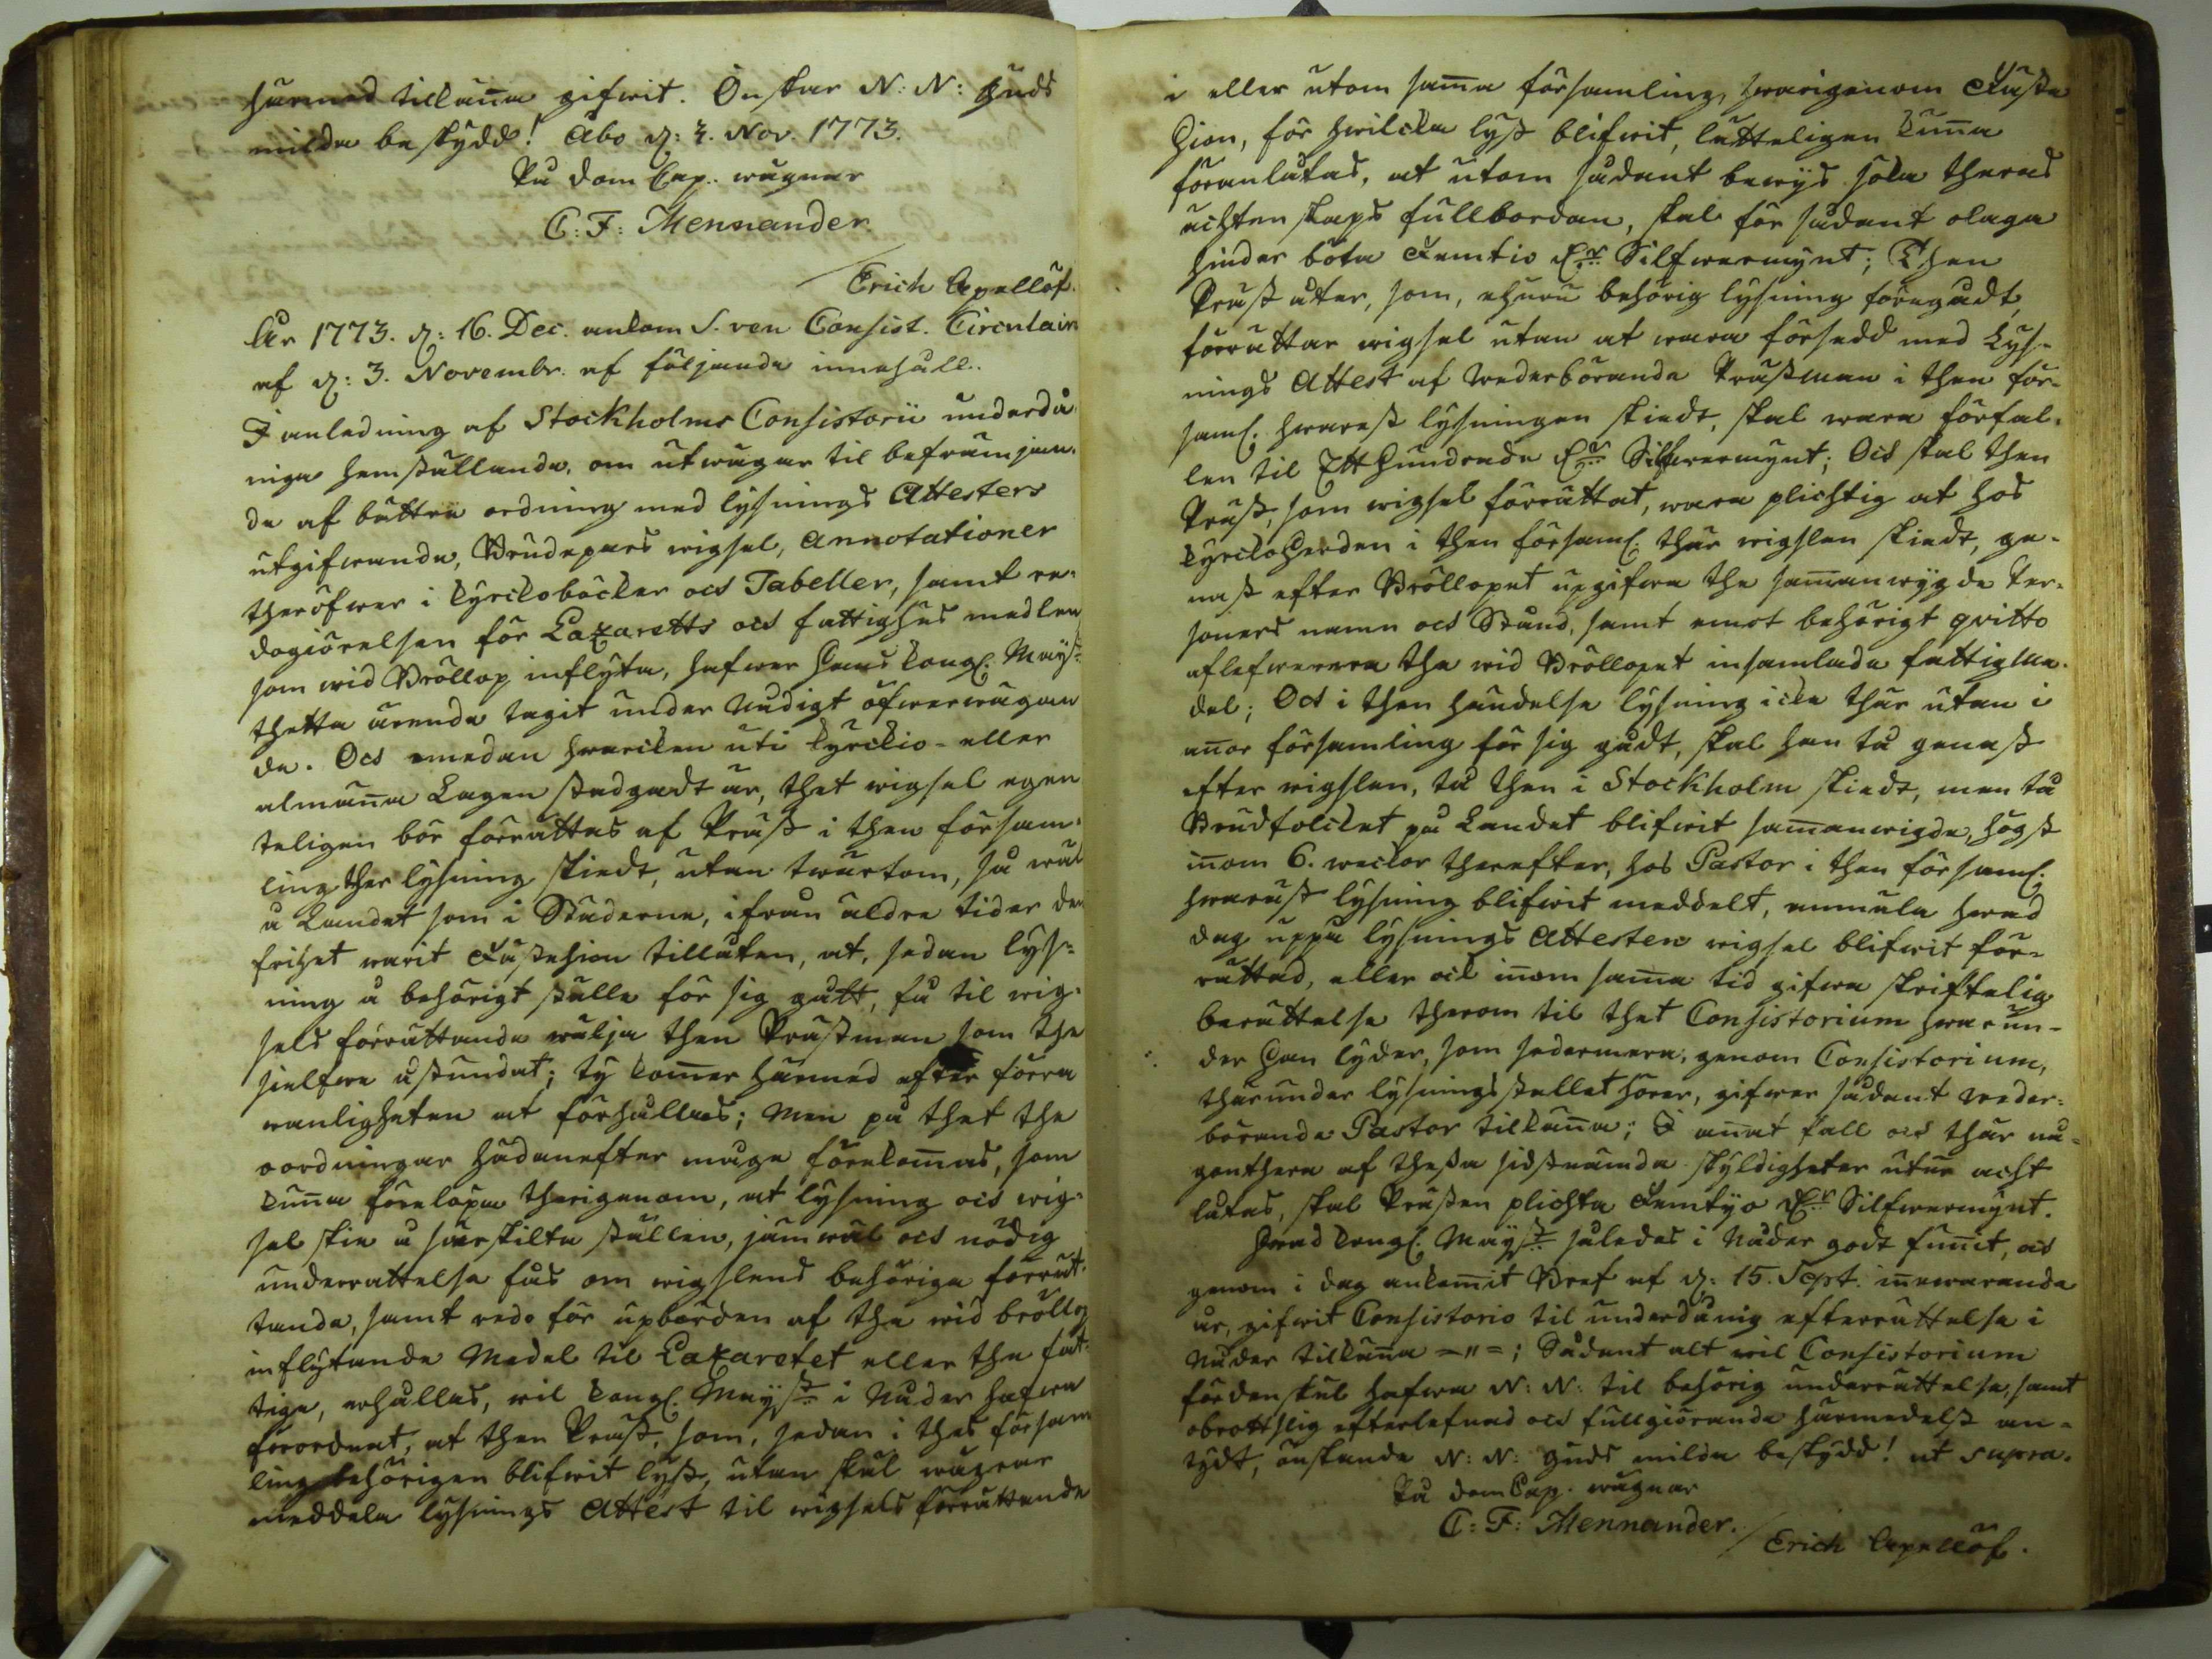 härmed tillkänna gifwit. Önskar N: N: Guds
milda beskydd! Åbo d: 3. Nov. 1773.
På Dom Cap. wägnar
C: F: Mennander.
Erich Apellöf.
År 1773. d: 16. Dec. ankom S. ven Consist. Circulair
af d: 3. Novembr. af följande innehåll.
I anledning af Stockholms Consistorii underdå-
niga hemställande, om utwägar til befrämjan-
de af bättre ordning med lysnings Attesters
utgifwande, Brudepars wigsel, annotationer
theröfwer i kyrckoböcker och Tabeller, samt re-
dogiörelsen för Lazaretts och fattighus medlen
som wid Bröllop inflyta, hafwer Hans Kongl. Maÿ:t
thetta ärende tagit under Nådigt öfwerwägan
de. Och emedan hwarcken uti kyrckio- eller
almänna Lagen stadgadt är, thet wigsel egen
teligen bör förrättas af Präst i then försam-
ling ther lysning skiedt, utan twärtom, så wäl
å Landet som i Städerne, ifrån äldre tider den
frihet warit Fästehion tillåten, at, sedan lys-
ning å behörigt ställe för sig gått, få til wig-
sels förrättande wälja then Prästman som the
sielfwe åstundat; ty kommer härmed efter förra
wanligheten at förhållas; Men på thet the
oordningar hädanefter måge förekommas, som
kunna förelöpa therigenom, at lysning och wig-
sel skie å särskilta ställen, jämwäl och nödig
underrättelse fås om wigslens behöriga förrät-
tande, samt redo för upbörden af the wid bröllop
inflytande Medel til Lazaretet eller the fat-
tige, erhållas, wil Kongl. Maÿ:t i Nåder hafwa
förordnat, at then Präst, som, sedan i thes försam
ling behörigen blifwit lyst, utan skäl wägrar
meddela lysnings Attest til wigsels förrättande
i eller utom samma församling, hwarigenom Fäste
Hion, för hwilcka lyst blifwit, lätteligen kunna
föranlåtas, at utom sådant bewis söka theras
ächtenskaps fullbordan, skal för sådant olaga
hinder böta Femtio D:r Silfwermynt; Then
Präst åter, som, ehuru behörig lysning föregådt,
förrättar wigsel utan at wara försedd med Lys-
nings Attest af wederbörande Prästman i then för-
saml. hwarest lysningen skiedt, skal wara förfal-
len til Ett Hundrade D:r Silfwermynt; Och skal then
Präst, som wigsel förrättat, wara plichtig at hos
KyrckoHerden i then församl. thär wigslen skiedt, ge-
nast efter Bröllopet upgifwa the sammanwigde Per-
soners namn och Stånd, samt emot behörigt qvitto
aflefwerera the wid Bröllopet insamlade fattigme-
del; Och i then händelse lysning icke thär utan i
annor församling för sig gådt, skal han tå genast
efter wigslen, tå then i Stockholm skiedt, men tå
Brudfolcket på Landet blifwit sammanwigde, högst
innom 6. weckor therefter, hos Pastor i then församl.
hwarest lysning blifwit meddelt, anmäla hwad
dag uppå lysnings Attesten wigsel blifwit för-
rättad, eller ock innom samma tid gifwa skriftelig
berättelse therom til thet Consistorium hwarun-
der Han lyder, som sedermera, genom Consistorium,
thärunder lysningsstället hörer, gifwer sådant weder-
börande Pastor tilkänna; I annat fall och thär nå-
gonthera af thessa sidstnämda skyldigheter utur acht
låtes, skal Prästen plichta Femtÿo D:r Silfwermynt.
Hwad Kongl. Maÿ:t således i Nåder godt funnit, och
genom i dag ankommit Bref af d: 15. Sept. innewarande
år, gifwit Consistorio til underdånig efterrättelse i
Nåder tilkänna =,,=; Sådant alt wil Consistorium
fördenskul hafwa N: N: til behörig underrättelse, samt
obrottslig efterlefnad och fullgiörande härmedelst an-
tydt, önskande N: N: Guds milda beskydd! ut supra.
På Dom Cap. wägnar
C: F: Mennander.
Erich Apellöf.